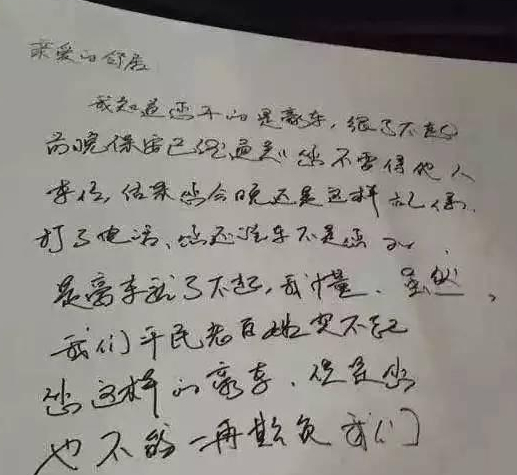 亲爱的邻居
我知道您开的是豪车，很了不起
前晚保安已经通知您不要停他人
车位，结果您今晚还是这样 保
打了电话、您还说车不是您
是豪车就了不起，我懂、虽然，
我们平民老百姓买不起
您这样的豪车、但是您
也不能一再欺负我们